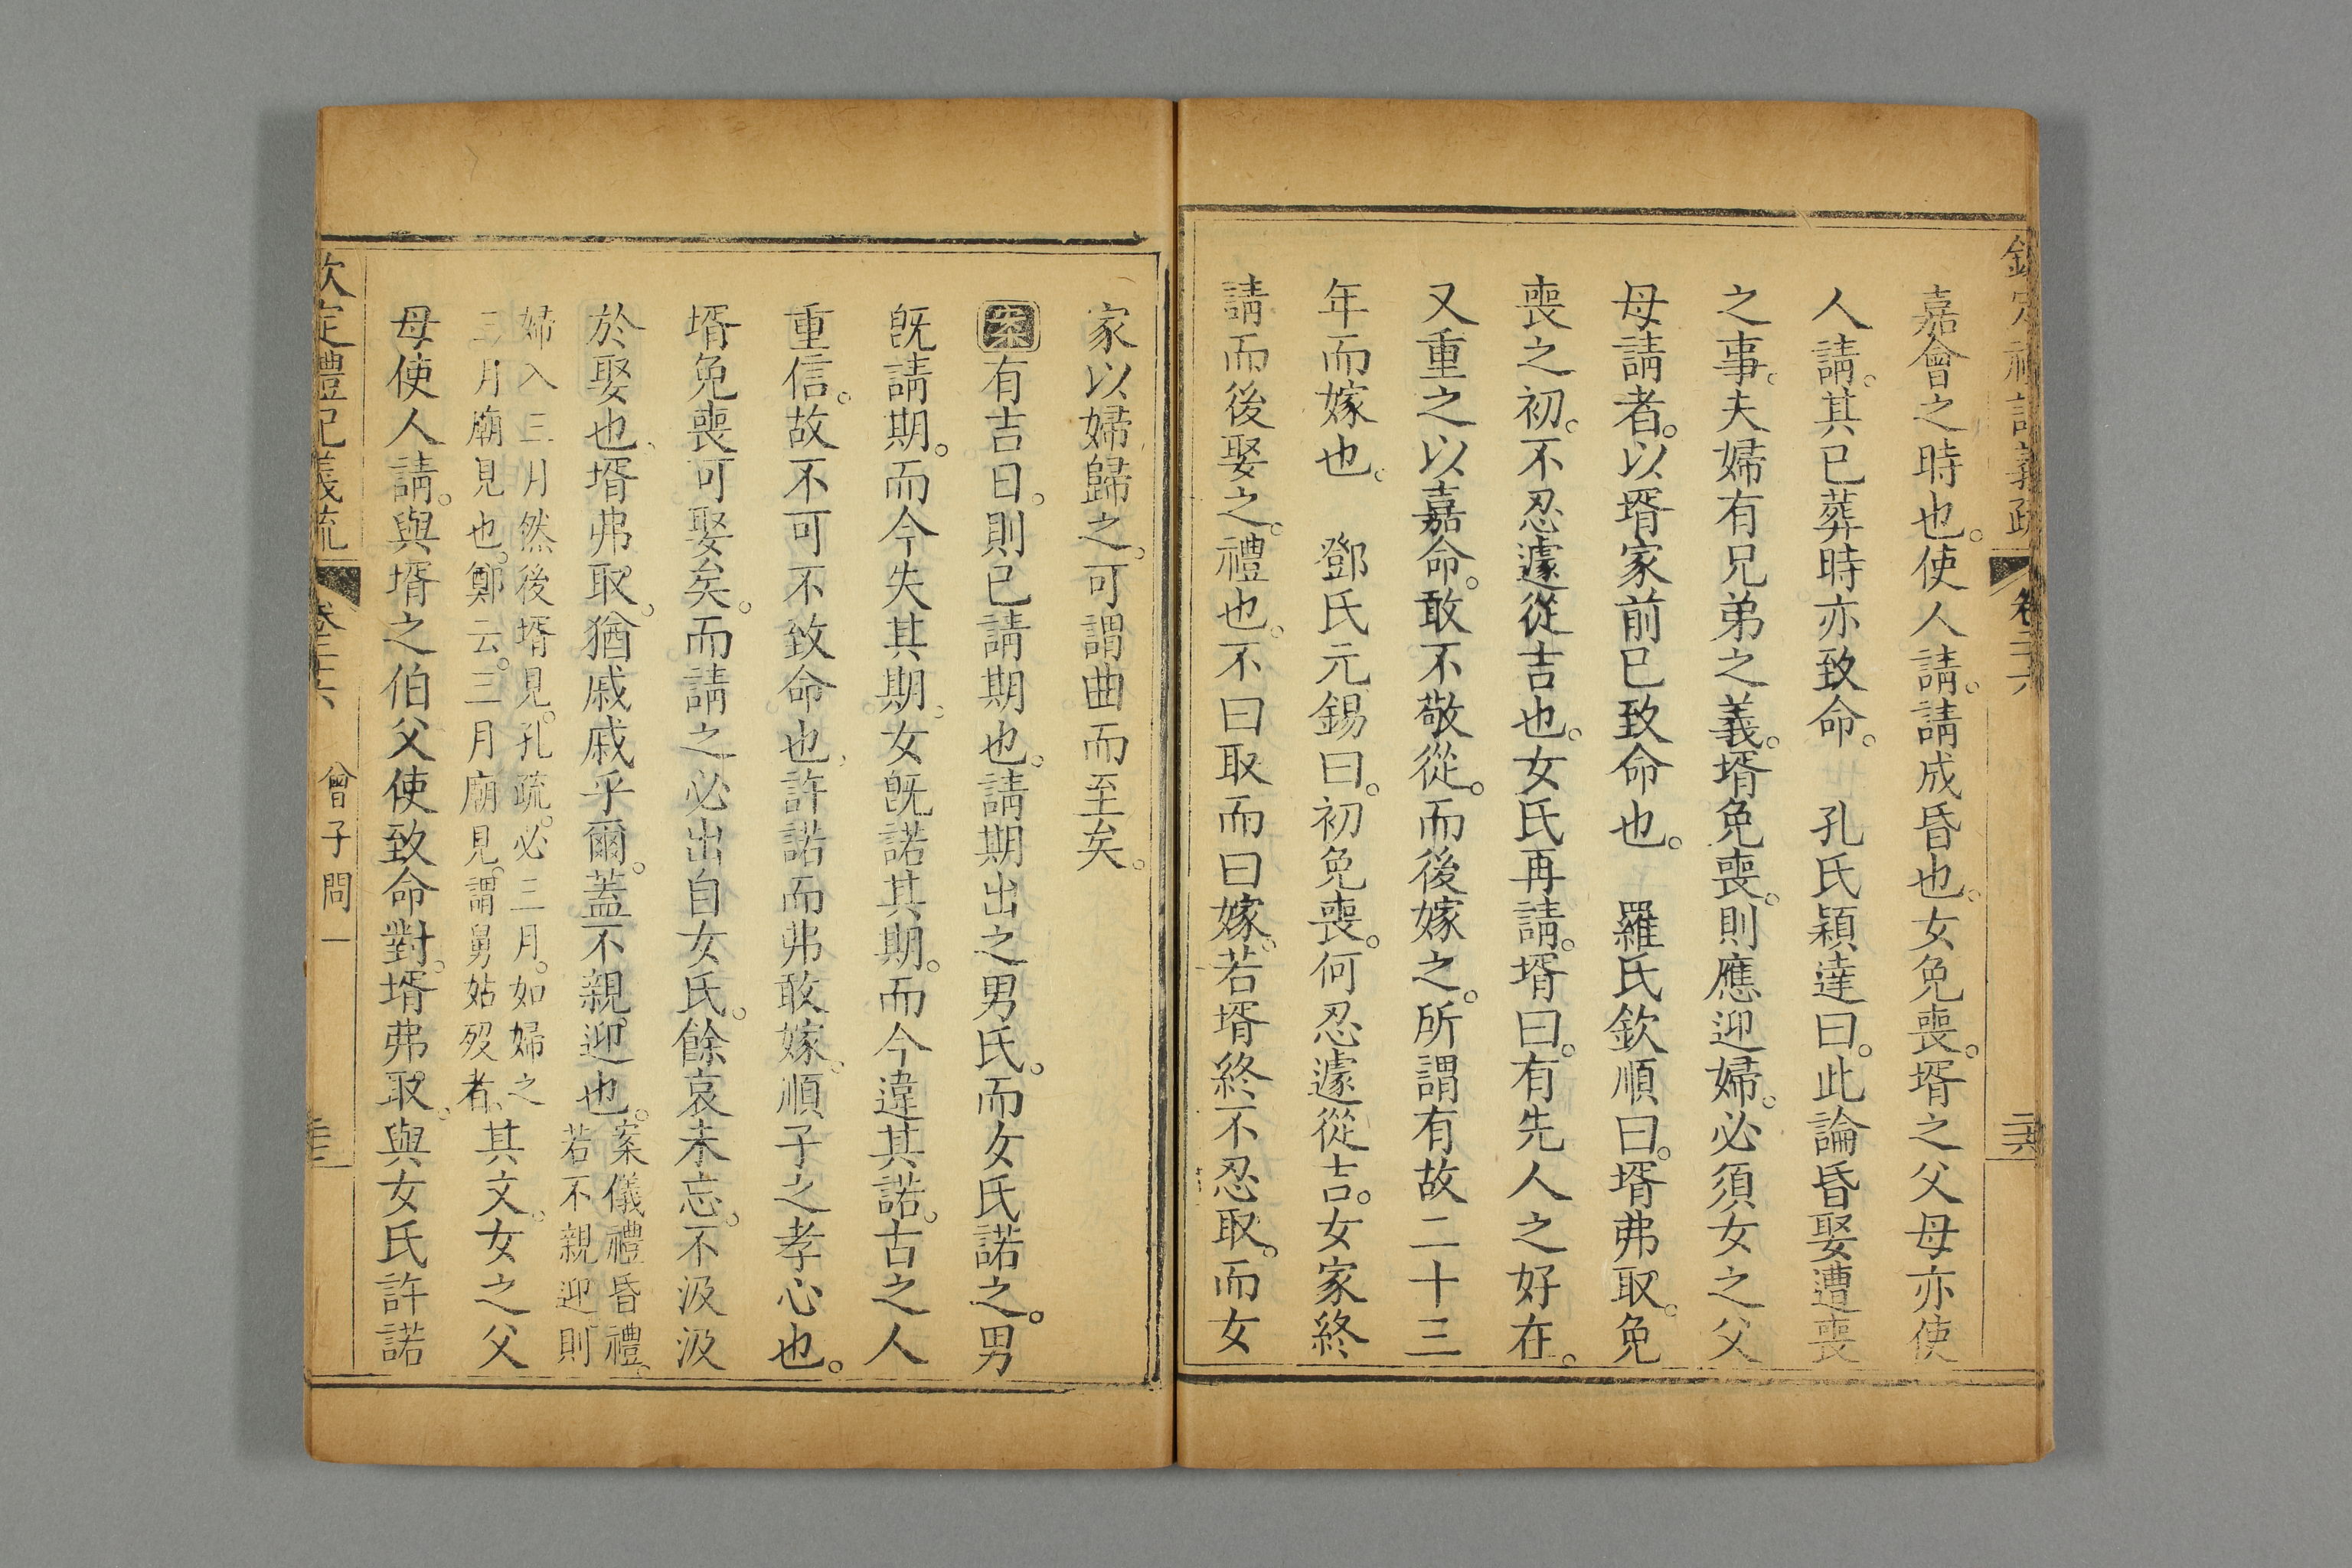 欽定禮記義疏 卷二十六
嘉會之時也。使人請。請成昏也。女免喪。壻之父母亦使
人請。其已葬時亦致命。 孔氏穎達曰。此論昏娶遭喪
之事。夫婦有兄弟之義。壻免喪。則應迎婦。必須女之父
母請者。以壻家前已致命也。 羅氏欽順曰。壻弗取。免
喪之初。不忍遽從吉也。女氏再請。壻曰。有先人之好在。
又重之以嘉命。敢不敬從。而後嫁之。所謂有故二十三
年而嫁也。 鄧氏元錫曰。初免喪。何忍遽從吉。女家終
請而後娶之。禮也。不曰取而曰嫁。若壻終不忍取。而女
家以婦歸之。可謂曲而至矣。
案有吉日。則已請期也。請期出之男氏。而女氏諾之。男
旣請期。而今失其期。女旣諾其期。而今違其諾。古之人
重信。故不可不致命也。許諾而弗敢嫁。順子之孝心也。
壻免喪可娶矣。而請之必出自女氏。餘哀未忘。不汲汲
於娶也。壻弗取。猶戚戚乎爾。蓋不親迎也。案儀禮昏禮。
若不親迎。則
婦入三月然後壻見。孔疏。必三月。如婦之
三月廟見也。鄭云。三月廟見。謂舅姑歿者。其文。女之父
母使人請。與壻之伯父使致命對。壻弗取。與女氏許諾
欽定禮記義疏 卷二十六 曾子問一